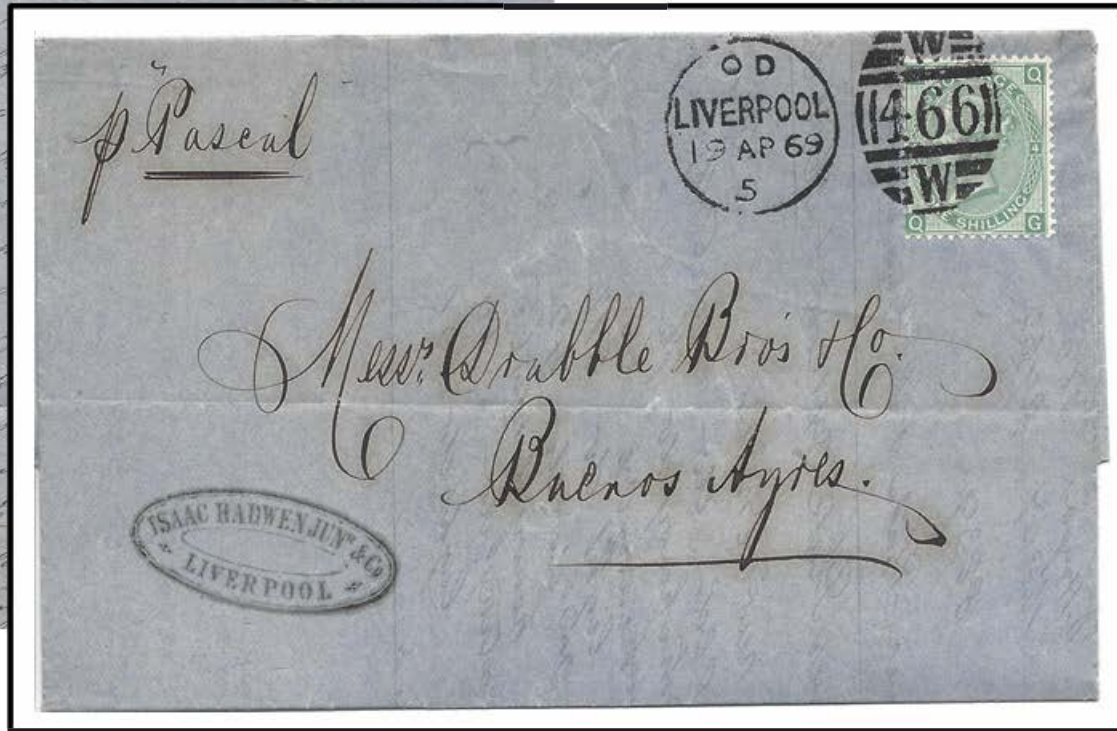 p "Pascal
O D
LIVERPOOL
19 AP 69
5
W
466
W
Q
4
ONE SHILLING
Q G
Messrs. Drabble Bros & Co.
Buenos Ayres.
ISAAC HADWEN JUNR & Co
LIVERPOOL